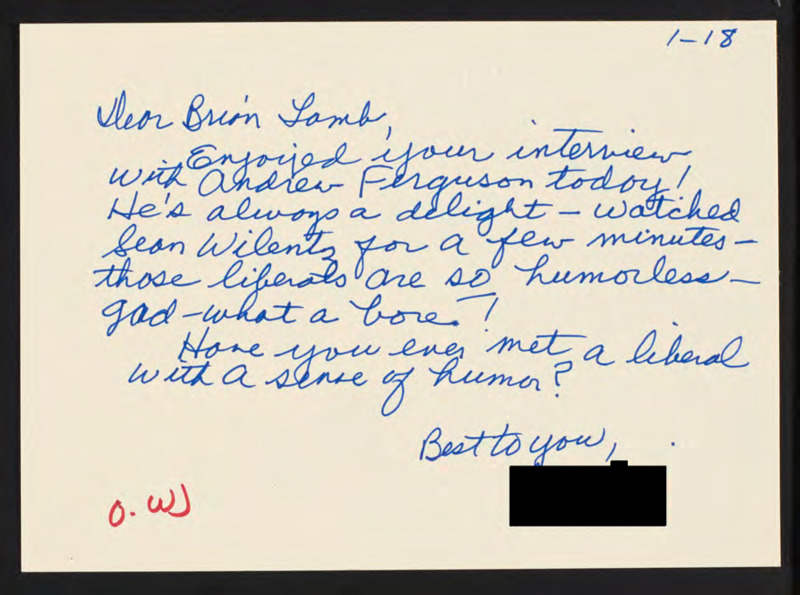 1-18
Dear Brian Lamb,
Enjoyed your interview
with Andrew Ferguson today!
He's always a delight - watched
Sean Wilentz for a few minutes -
those liberals are so humorless -
gad - what a bore!
Have you ever met a liberal
with a sense of humor?
Best to you,
O. W)